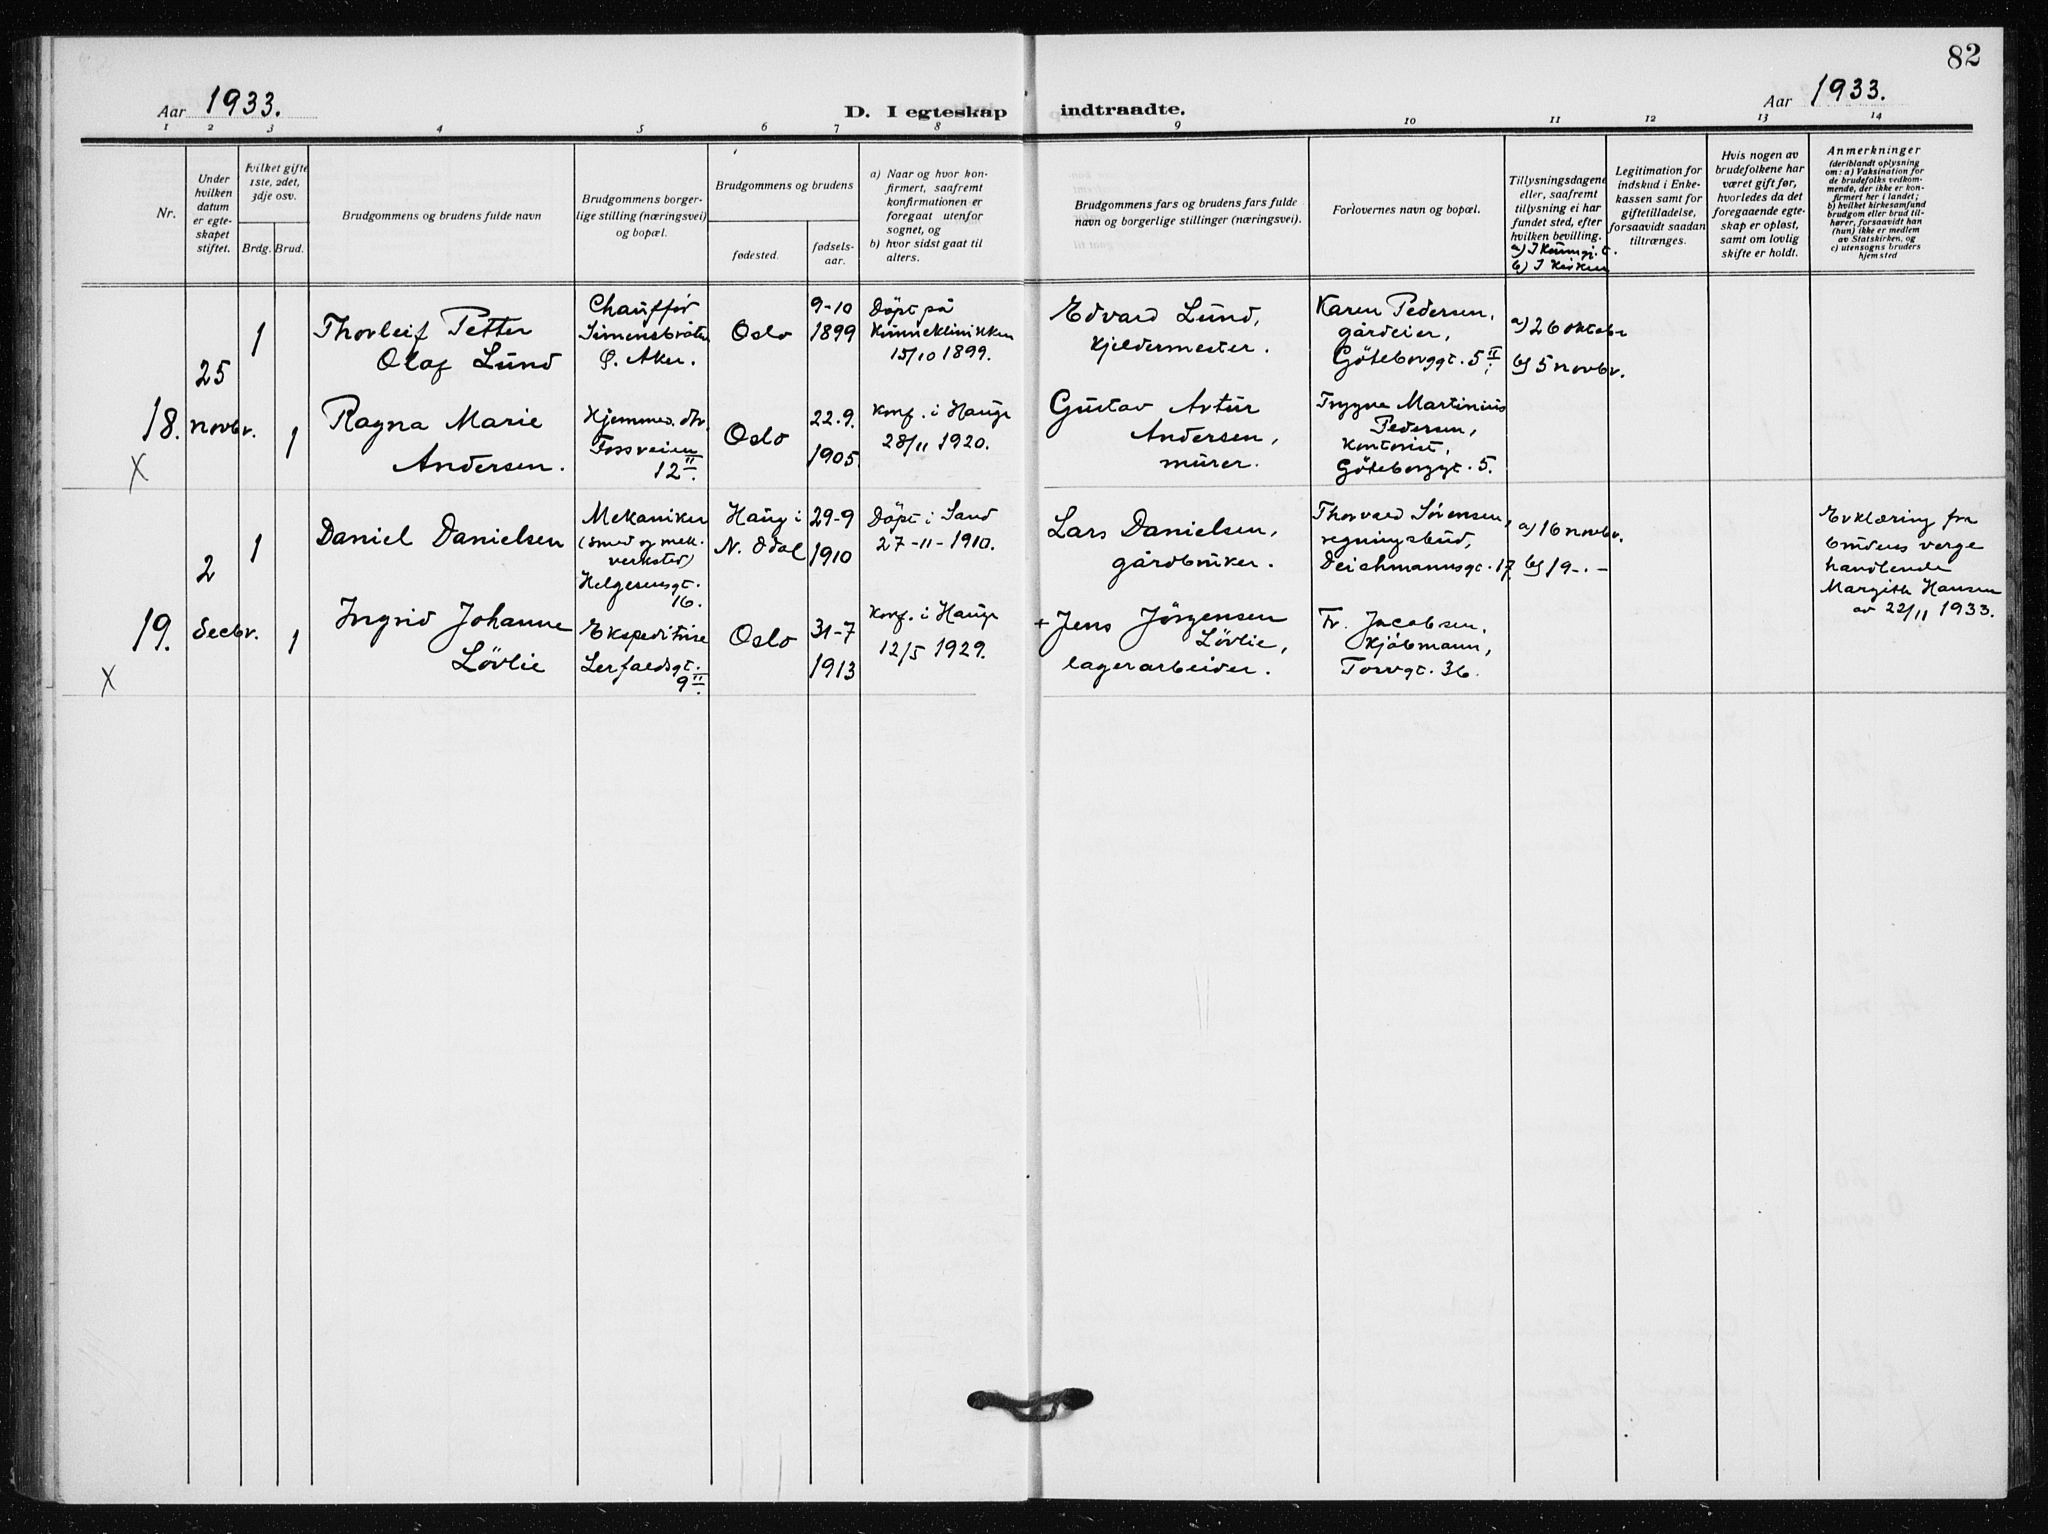 82
Aar 1933.
D. I egteskap indtraadte.
Aar 1933.
1 2 3 4 5 6 7 8 9 10 11 12 13 14
Nr.
Under
hvilken
datum
er egte-
skapet
stiftet.
Hvilket gifte
1ste, 2det,
3dje osv.
Brdg. Brud.
Brudgommens og brudens fulde navn
Brudgommens borger-
lige stilling (næringsvei)
og bopæl.
Brudgommens og brudens
fødested.
fødsels-
aar.
a) Naar og hvor kon-
firmert, saafremt
konfirmationen er
foregaat utenfor
sognet, og
b) hvor sidst gaat til
alters.
Brudgommens fars og brudens fars fulde
navn og borgerlige stillinger (næringsvei).
Forlovernes navn og bopæl.
Tillysningsdagene
eller, saafremt
tillysning ei har
fundet sted, efter
hvilken bevilling.
b) I Kirken
Legitimation for
indskud i Enke-
kassen samt for
giftetilladelse,
forsaavidt saadan
tiltrænges.
Hvis nogen av
brudefolkene har
været gift før,
hvorledes da det
foregaaende egte-
skap er opløst,
samt om lovlig
skifte er holdt.
Anmerkninger
(deriblandt oplysning
om: a) Vaksination for
de brudefolks vedkom-
mende, der ikke er kon-
firmert her i landet;
b) hvilket kirkesamfund
brudgom eller brud til-
hører, forsaavidt han
(hun) ikke er medlem
av Statskirken, og
c) utensogns bruders
hjemsted
18.
X
25
novbr.
1
1
Thorleif Petter
Olaf Lund
Chauffør
Simensbråten
Ø. Aker.
Oslo
9-10
1899
Döpt på
Kvinneklinikken
15/10 1899.
Edvard Lund,
kjeldermester.
Karen Pedersen,
gårdeier,
Göteborggt. 5 II.
a) 26 oktobr
b) 5 novbr.
Ragna Marie
Andersen.
Hjemmev. dtr.
Fossveien
12 II.
Oslo
22.9.
1905.
Konf. i Hauge
28/11 1920.
Gustav Artur
Andersen,
murer.
Trygve Martinius
Pedersen,
kontorist,
Göteborggt. 5.
19.
X
2
decbr.
1
1
Daniel Danielsen
Mekaniker
(smed og mek.
verksted)
Helgesensgt.
16.
Haug i
N. Odal
29-9
1910
Döpt i Sand
27-11-1910.
Lars Danielsen,
gårdbruker.
Thorvard Sörensen,
regningsbud,
Deichmannsgt. 17.
a) 16 novbr.
b) 19 - . -
Erklæring fra
brudens verge
handlende
Margith Hansen
av 22/11 1933.
Ingrid Johanne
Lövlie
Ekspeditrise
Lerfaldsgt.
9 II.
Oslo
31-7
1913
Konf. i Hauge
12/5 1929.
+ Jens Jörgensen
Lövlie,
lagerarbeider.
Fr. Jacobsen,
kjöbmann,
Torvgt. 36.